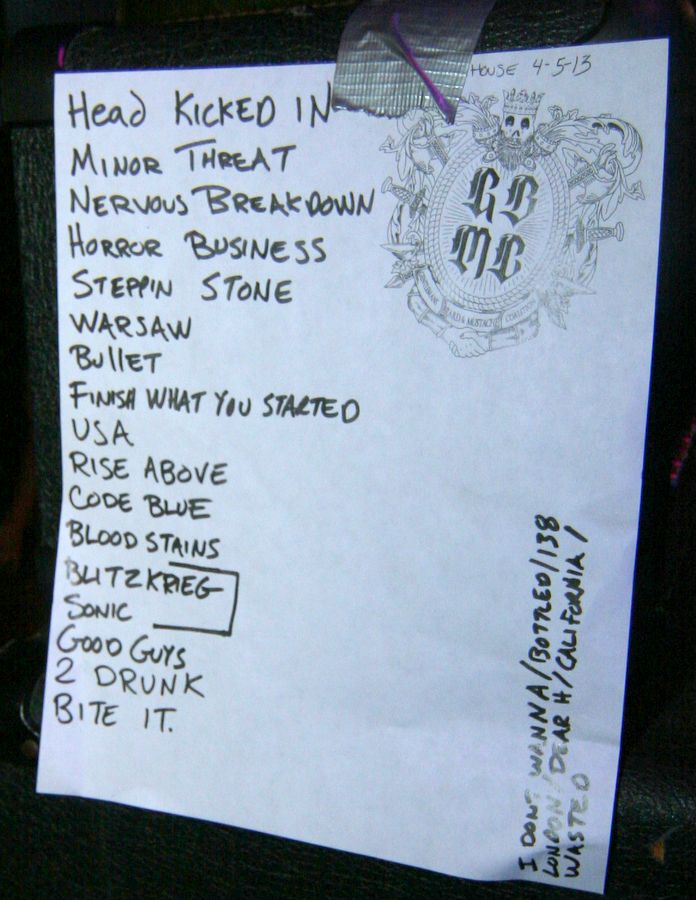 HOUSE 4-5-13
Head KICKED IN
MINOR THREAT
NERVOUS BREAKDOWN
HORROR BUSINESS
STEPPIN STONE
WARSAW
BULLET
FINISH WHAT YOU STARTED
USA
RISE ABOVE
CODE BLUE
BLOOD STAINS
BLITZKRIEG
SONIC
GOOD GUYS
2 DRUNK
BITE IT.
GB
MC
BEARD & MUSTACHE COALITION
I DONT WANNA/BOTTLED/138
LONDON/DEAR H/CALIFORNIA/
WASTED